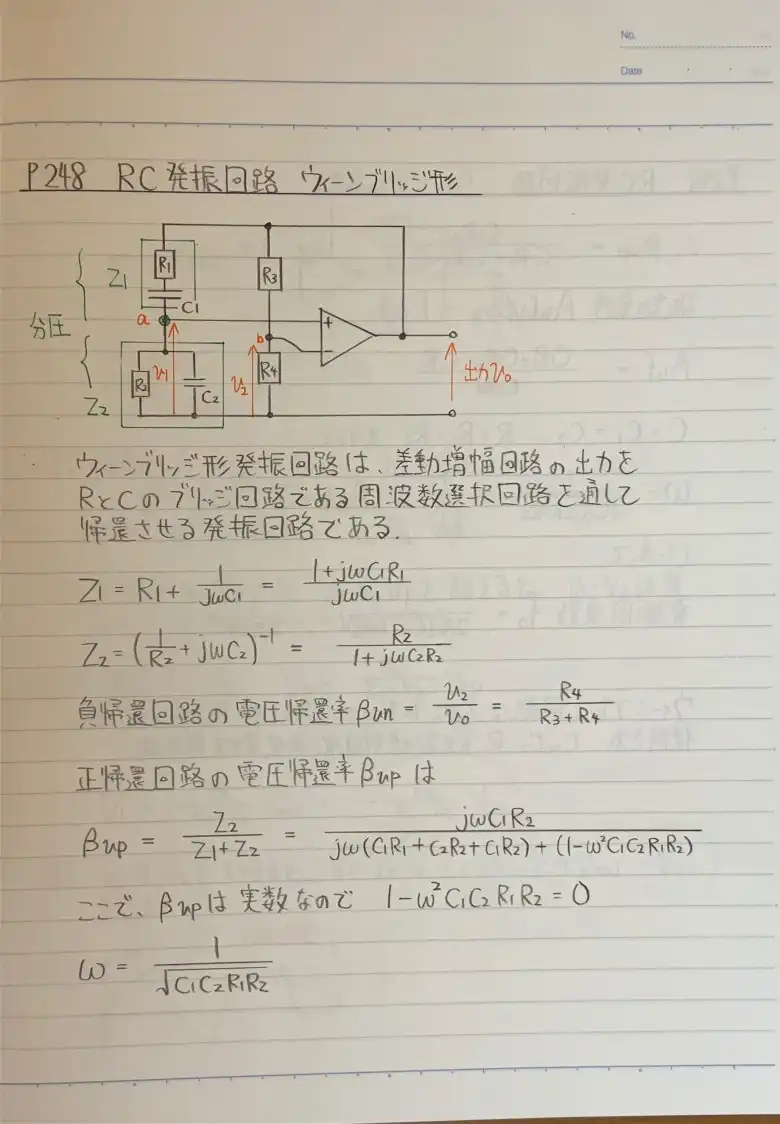 No.
Date
P248 RC発振回路 ウィーンブリッジ形
R1
Z1
C1
R3
a
分圧
b
+
−
R2
v1
C2
v2
R4
出力v0
Z2
ウィーンブリッジ形発振回路は、差動増幅回路の出力を
RとCのブリッジ回路である周波数選択回路を通して
帰還させる発振回路である.
Z1 = R1 + 1/jωC1 = (1+jωC1R1)/jωC1
Z2 = (1/R2 + jωC2)⁻¹ = R2/(1+jωC2R2)
負帰還回路の電圧帰還率βvn = v2/v0 = R4/(R3+R4)
正帰還回路の電圧帰還率βvpは
βvp = Z2/(Z1+Z2) = jωC1R2/(jω(C1R1+C2R2+C1R2)+(1-ω²C1C2R1R2))
ここで、βvpは実数なので 1-ω²C1C2R1R2=0
ω = 1/√C1C2R1R2